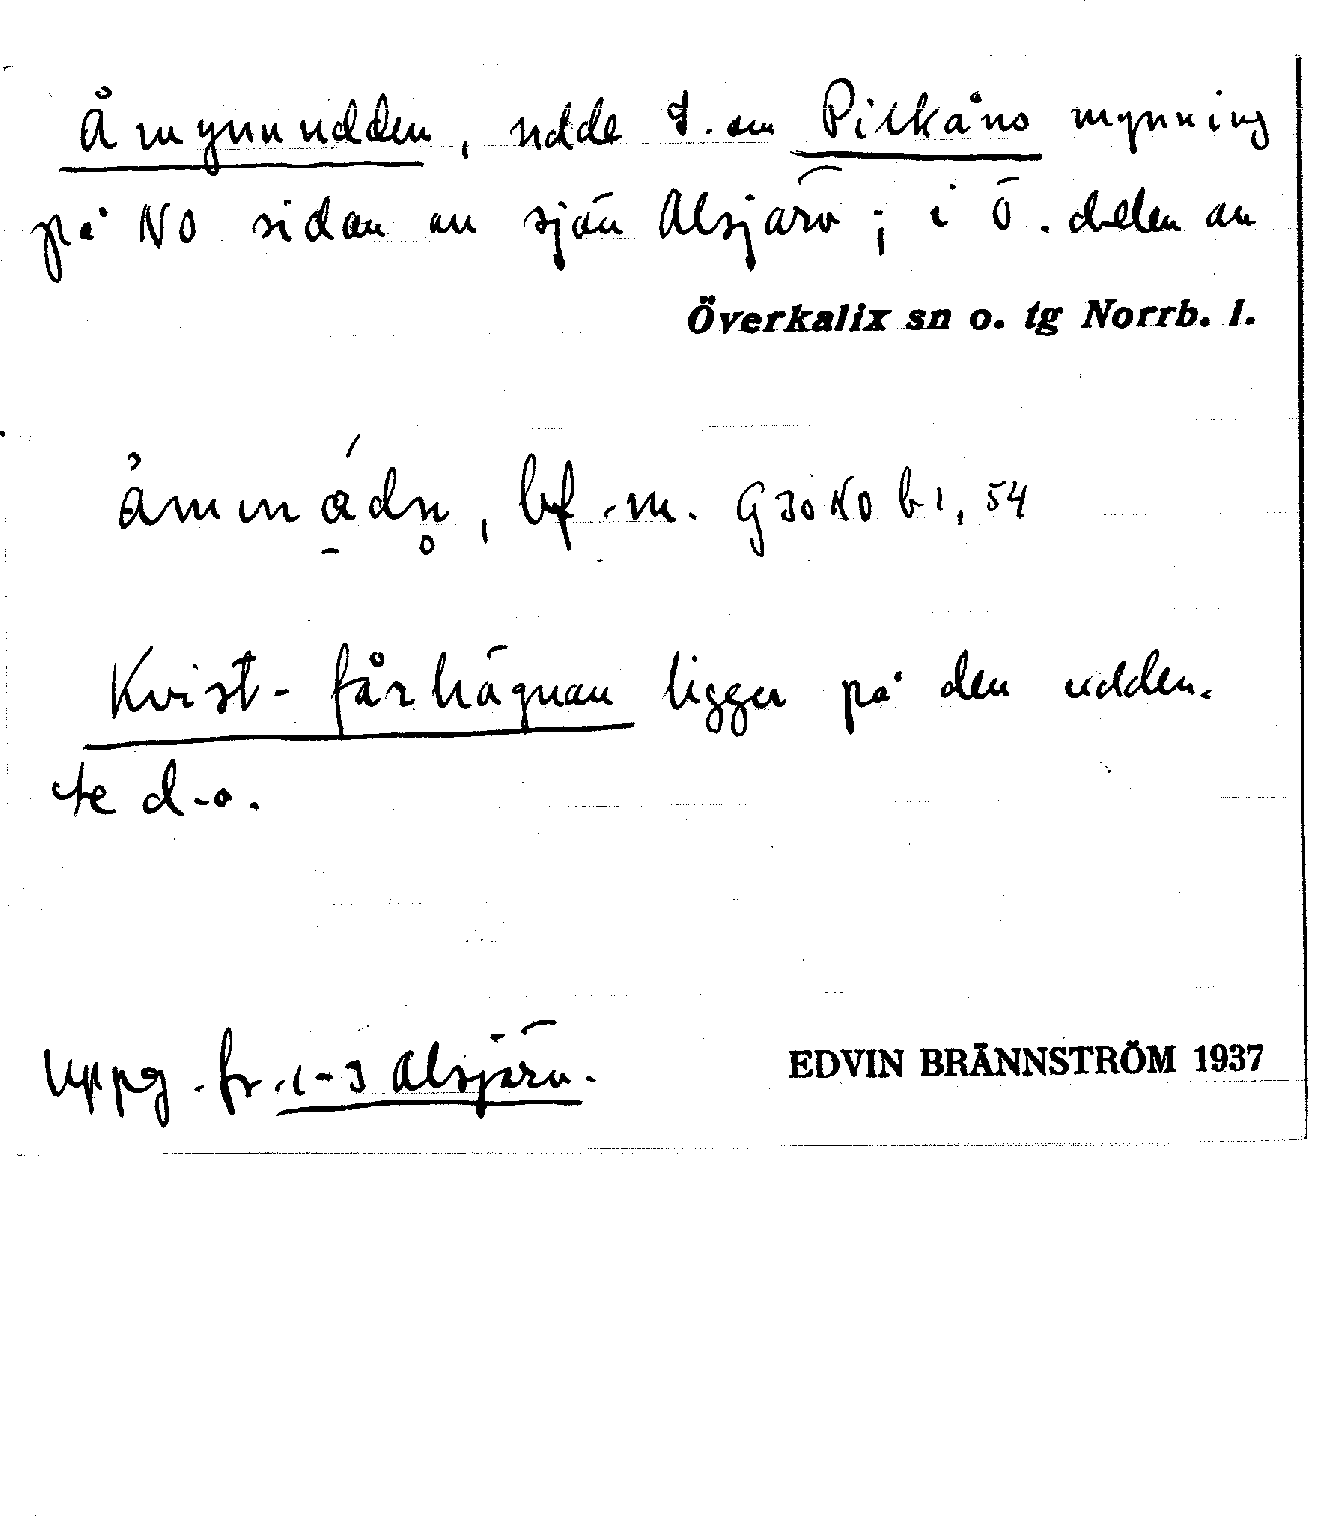 Åmynnudden, udde S. om Pilkåns mynning
på NO sidan av sjön Alsjärv; i Ö. delen av
Överkalix sn o. tg Norrb. l.
bf. m. G30NO b 1, 54
Kvist-fårhägnan ligger på den udden.
Uppg. fr. 1-3 Alsjärv.
EDVIN BRÄNNSTRÖM 1937